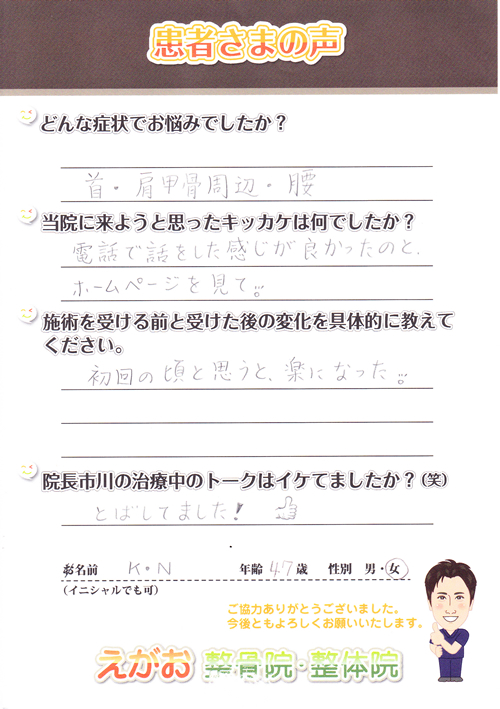 患者さまの声
どんな症状でお悩みでしたか?
首・肩甲骨周辺・腰
当院に来ようと思ったキッカケは何でしたか?
電話で話をした感じが良かったのと、
ホームページを見て。
施術を受ける前と受けた後の変化を具体的に教えて
ください。
初回の頃と思うと、楽になった。
院長市川の治療中のトークはイケてましたか?(笑)
とばしてました!
お名前 K・N 年齢 47歳 性別 男・女
(イニシャルでも可)
ご協力ありがとうございました。
今後ともよろしくお願いいたします。
えがお 整骨院・整体院